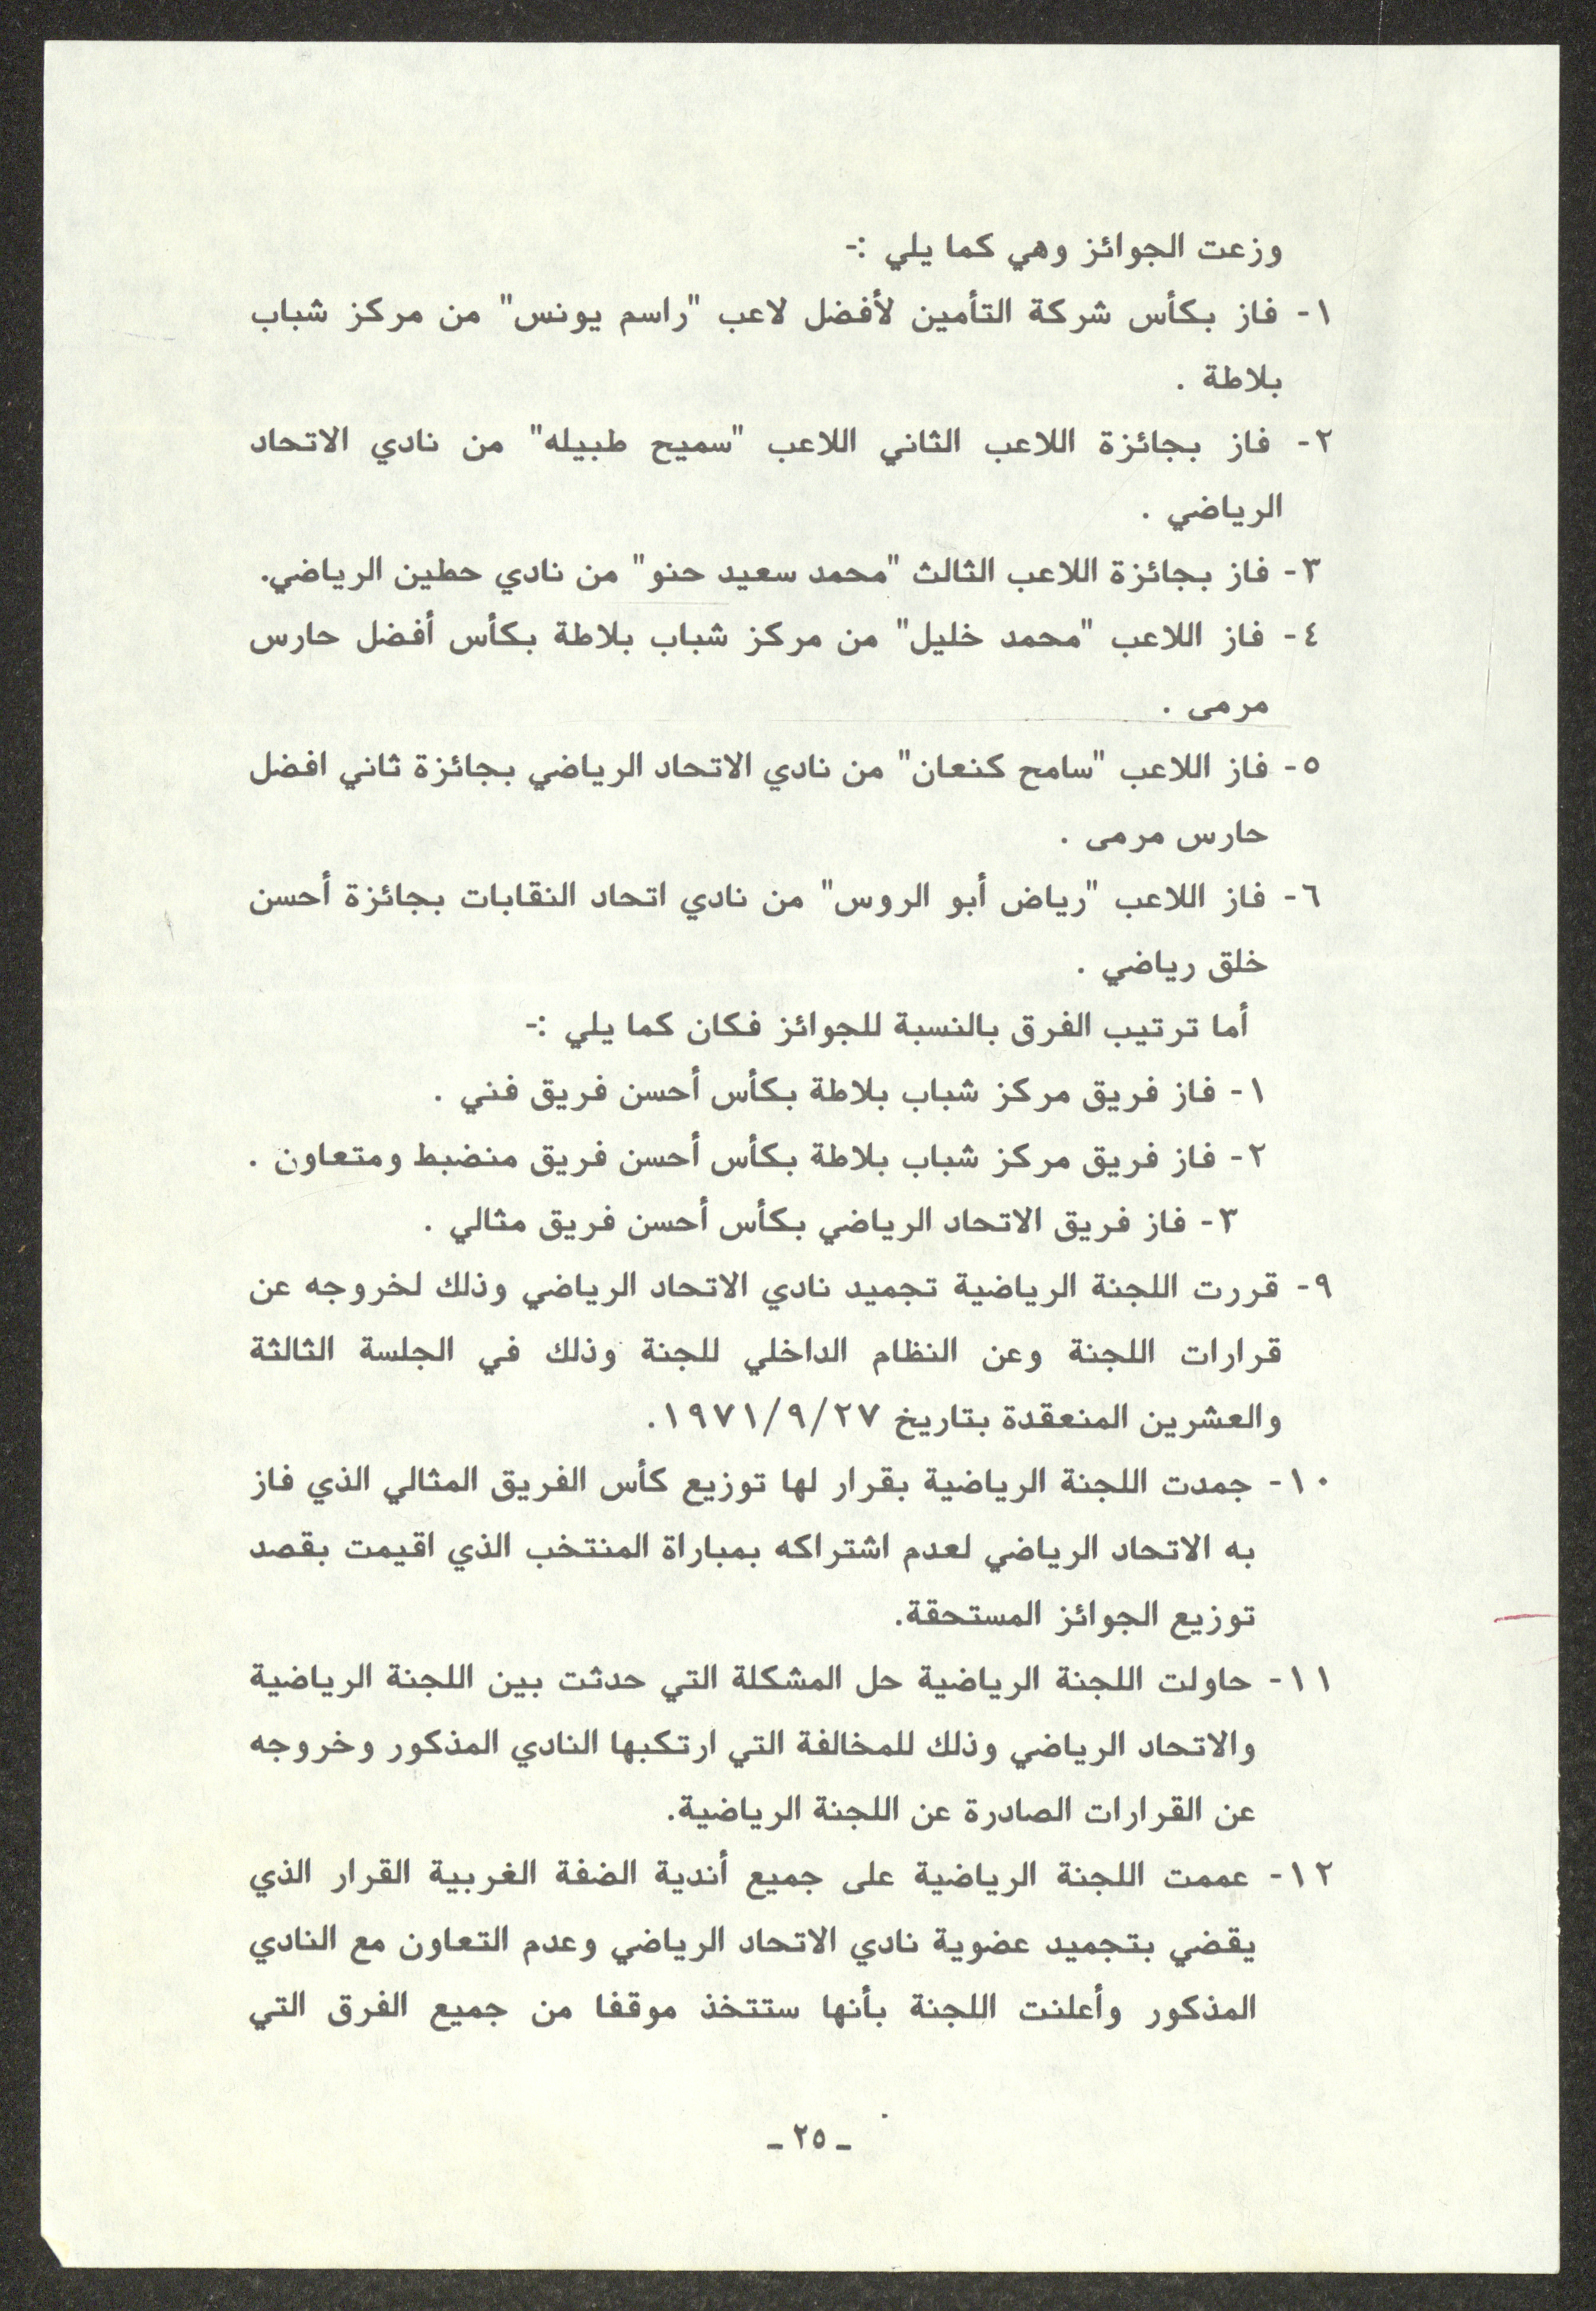 وزعت الجوائز وهي كما يلي :-
١- فاز بكأس شركة التأمين لأفضل لاعب "راسم يونس" من مركز شباب
بلاطة .
٢- فاز بجائزة اللاعب الثاني اللاعب "سميح طبيله" من نادي الاتحاد
الرياضي .
٣- فاز بجائزة اللاعب الثالث "محمد سعيد حنو" من نادي حطين الرياضي.
٤- فاز اللاعب "محمد خليل" من مركز شباب بلاطة بكأس أفضل حارس
مرمى .
٥- فاز اللاعب "سامح كنعان" من نادي الاتحاد الرياضي بجائزة ثاني افضل
حارس مرمى .
٦- فاز اللاعب "رياض أبو الروس" من نادي اتحاد النقابات بجائزة أحسن
خلق رياضي .
أما ترتيب الفرق بالنسبة للجوائز فكان كما يلي :-
١- فاز فريق مركز شباب بلاطة بكأس أحسن فريق فني .
٢- فاز فريق مركز شباب بلاطة بكأس أحسن فريق منضبط ومتعاون .
٣- فاز فريق الاتحاد الرياضي بكأس أحسن فريق مثالي .
٩- قررت اللجنة الرياضية تجميد نادي الاتحاد الرياضي وذلك لخروجه عن
قرارات اللجنة وعن النظام الداخلي للجنة وذلك في الجلسة الثالثة
والعشرين المنعقدة بتاريخ ١٩٧١/٩/٢٧.
١٠- جمدت اللجنة الرياضية بقرار لها توزيع كأس الفريق المثالي الذي فاز
به الاتحاد الرياضي لعدم اشتراكه بمباراة المنتخب الذي اقيمت بقصد
توزيع الجوائز المستحقة.
١١- حاولت اللجنة الرياضية حل المشكلة التي حدثت بين اللجنة الرياضية
والاتحاد الرياضي وذلك للمخالفة التي ارتكبها النادي المذكور وخروجه
عن القرارات الصادرة عن اللجنة الرياضية.
١٢- عممت اللجنة الرياضية على جميع أندية الضفة الغربية القرار الذي
يقضي بتجميد عضوية نادي الاتحاد الرياضي وعدم التعاون مع النادي
المذكور وأعلنت اللجنة بأنها ستتخذ موقفا من جميع الفرق التي
- ٢٥ -